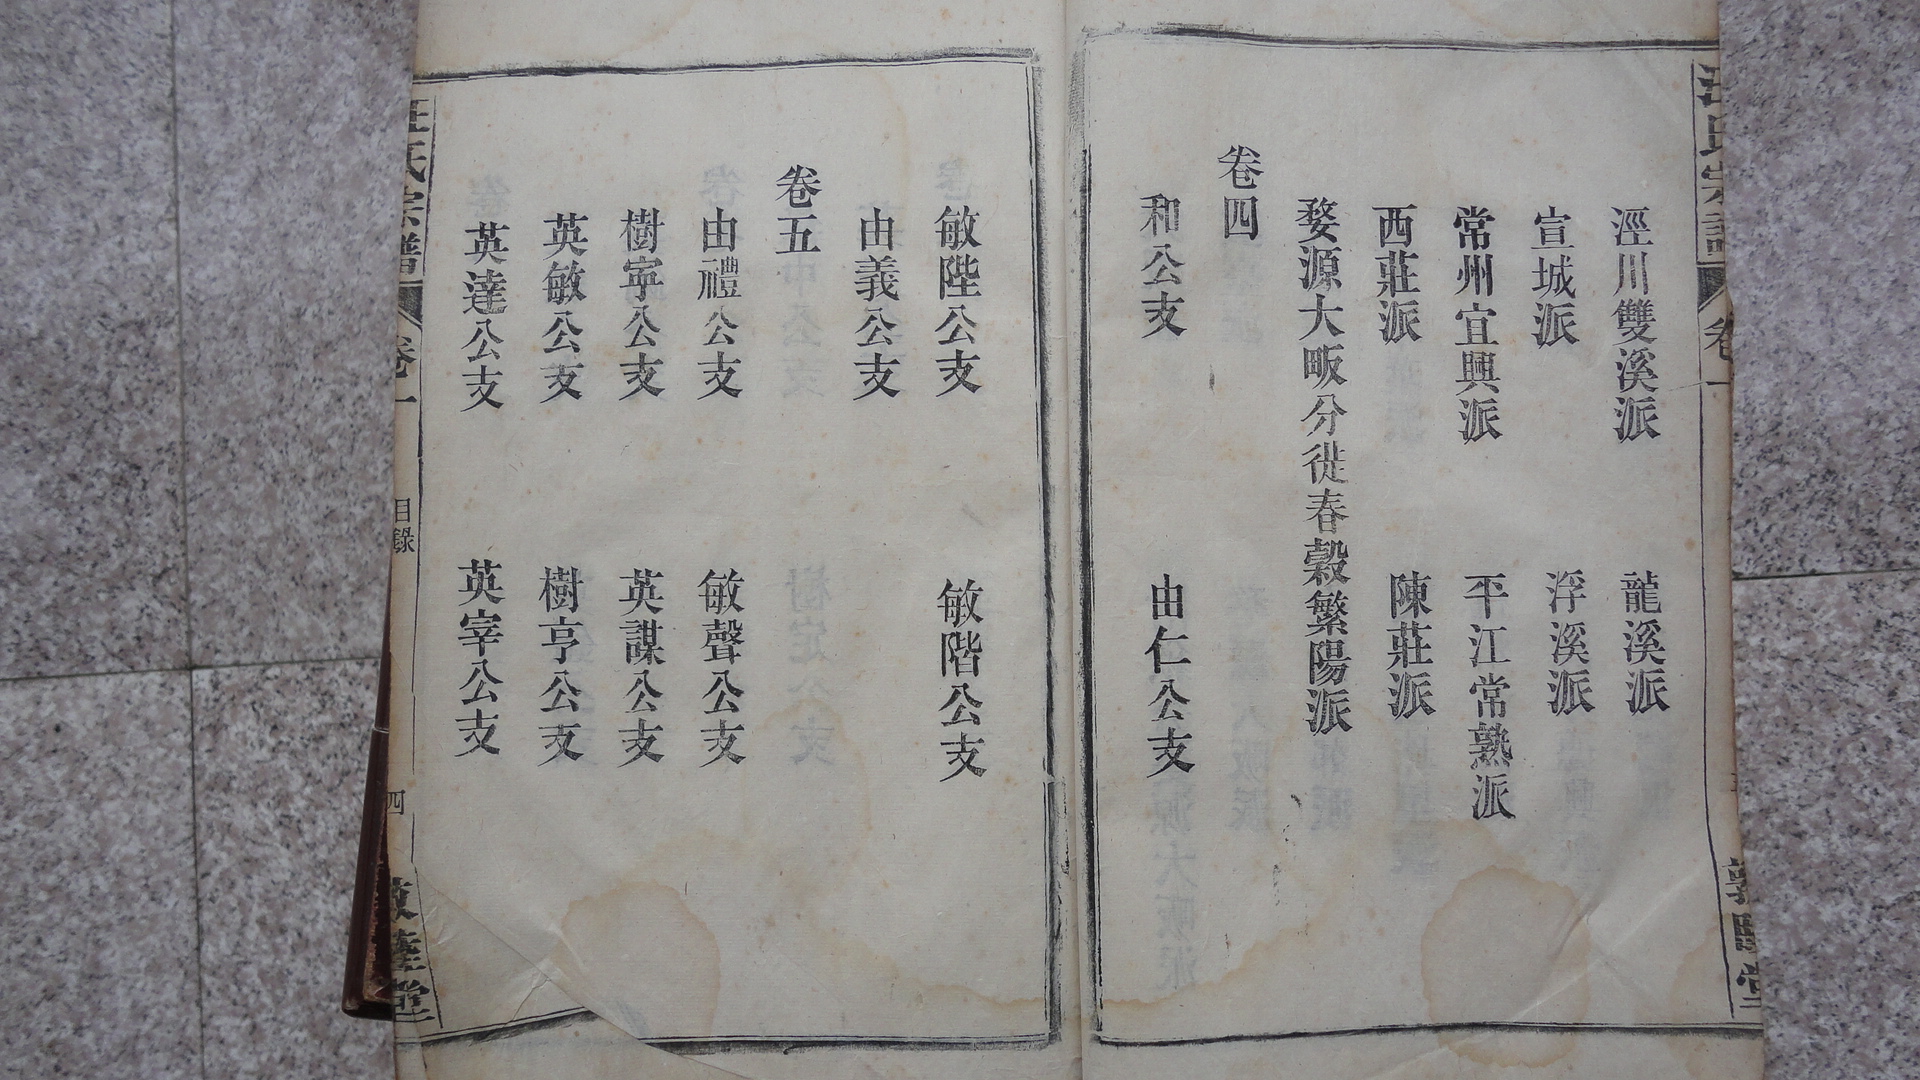 涇川雙溪派
龍溪派
宣城派
浮溪派
常州宜興派
平江常熟派
西莊派
陳莊派
婺源大畈分徙春穀繁陽派
卷四
和公支
由仁公支
敏陛公支
敏階公支
由義公支
卷五
由禮公支
敏聲公支
樹寧公支
英謀公支
英敏公支
樹亨公支
英達公支
英宰公支
汪氏宗譜
卷一
目錄
四